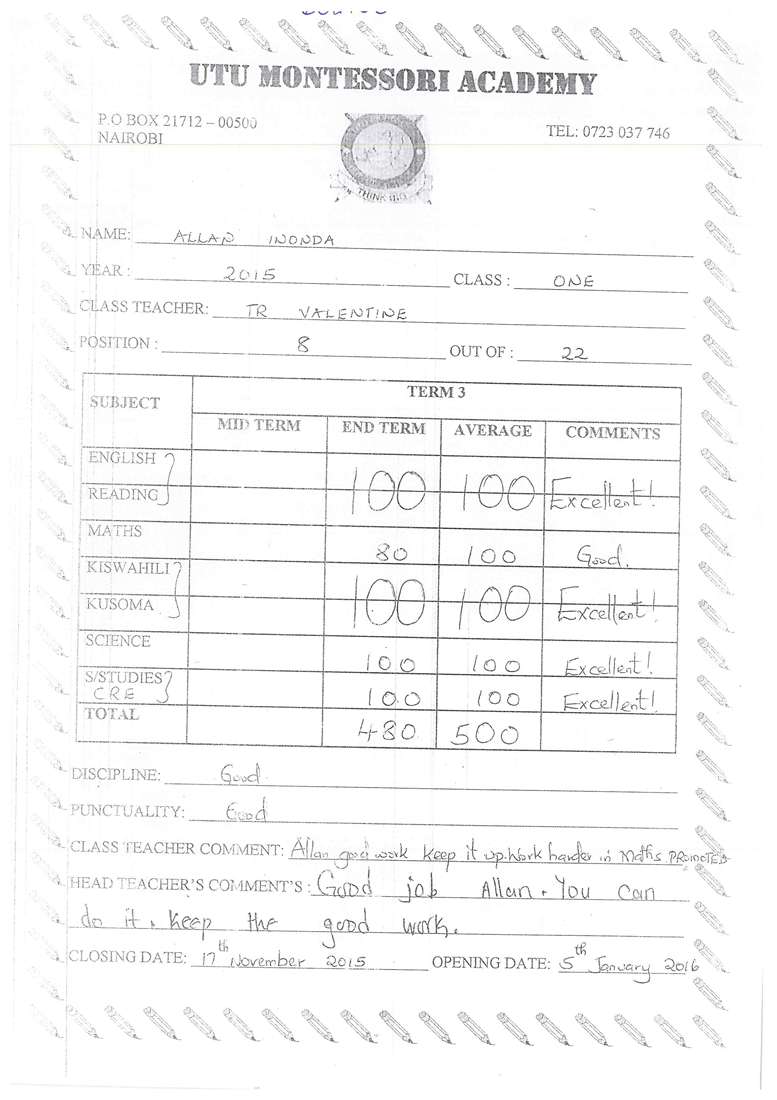 UTU MONTESSORI ACADEMY
P.O BOX 21712 – 00500
NAIROBI
TEL: 0723 037 746
THINK BIG
NAME: ALLAN INONDA
YEAR : 2015 CLASS : ONE
CLASS TEACHER: TR VALENTINE
POSITION : 8 OUT OF : 22
SUBJECT TERM 3
MID TERM END TERM AVERAGE COMMENTS
ENGLISH
READING 100 100 Excellent!
MATHS 80 100 Good.
KISWAHILI
KUSOMA 100 100 Excellent!
SCIENCE 100 100 Excellent!
S/STUDIES
CRE 100 100 Excellent!
TOTAL 480 500
DISCIPLINE: Good
PUNCTUALITY: Good
CLASS TEACHER COMMENT: Allan good work keep it up. Work harder in Maths PROMOTED
HEAD TEACHER'S COMMENT'S : Good job Allan. You can
do it. Keep the good work.
CLOSING DATE: 17th November 2015 OPENING DATE: 5th January 2016